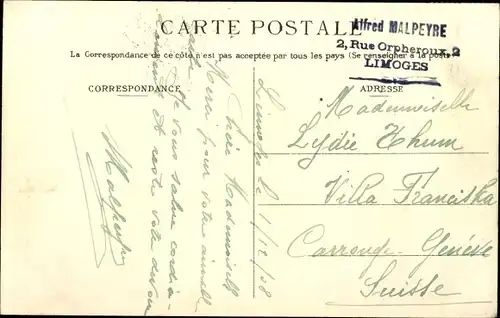 CARTE POSTALE
Alfred MALPEYRE
2, Rue Orpheroux, 2
LIMOGES
La Correspondance de ce côté n'est pas acceptée par tous les pays (Se renseigner à la poste)
CORRESPONDANCE
ADRESSE
Limoges le 1/12/08
Chère Mademoiselle
Merci pour votre aimable
carte
Je vous salue cordia-
lement et reste votre dévoué
Malpeyre
Mademoiselle
Lydie Thum
Villa Franciska
Carrouge-Genève
Suisse